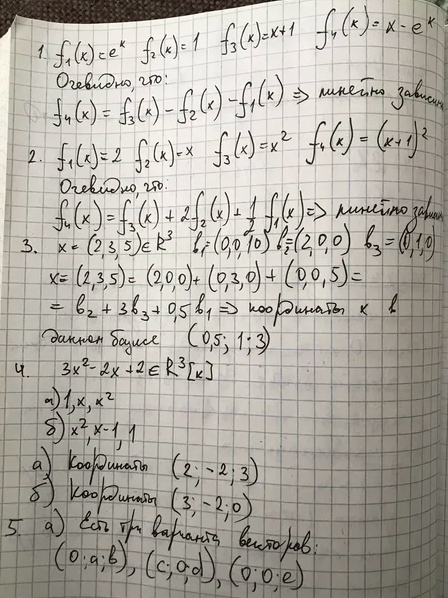 1. f₁(x)=eˣ f₂(x)=1 f₃(x)=x+1 f₄(x)=x-eˣ
Очевидно, что:
f₄(x)=f₃(x)-f₂(x)-f₁(x) => линейно зависим
2. f₁(x)=2 f₂(x)=x f₃(x)=x² f₄(x)=(x+1)²
Очевидно, что.
f₄(x)=f₃(x)+2f₂(x)+1/2 f₁(x) => линейно зависим
3. x=(2,3,5)∈R³ b₁=(0,0,10) b₂=(2,0,0) b₃=(0,1,0)
x=(2,3,5)=(2,0,0)+(0,3,0)+(0,0,5)=
=b₂+3b₃+0,5b₁ => координаты x в
данном базисе (0,5; 1; 3)
4. 3x²-2x+2∈R³[x]
а) 1, x, x²
б) x², x-1, 1
а) Координаты (2; -2; 3)
б) Координаты (3; -2; 0)
5. а) Есть три варианта векторов:
(0; a; b), (c; 0; d), (0; 0; e)